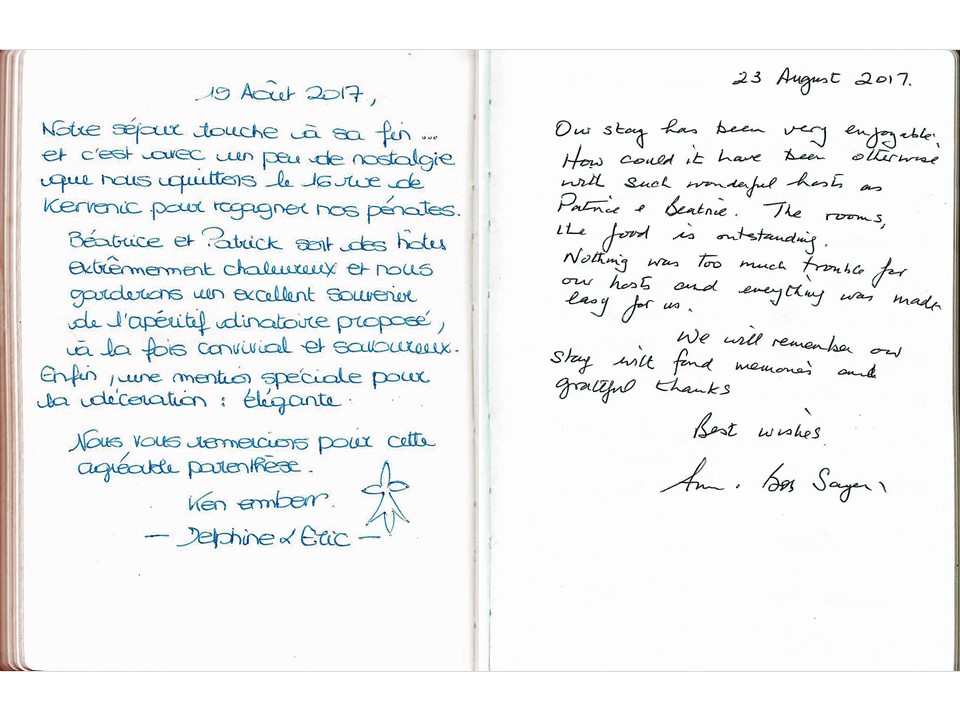 19 Août 2017,
Notre séjour touche à sa fin...
et c'est avec un peu de nostalgie
que nous quittons le 16 rue de
Kervenic pour regagner nos pénates.
Béatrice et Patrick sont des hôtes
extrêmement chaleureux et nous
garderons un excellent souvenir
de l'apéritif dinatoire proposé,
à la fois convivial et savoureux.
Enfin, une mention spéciale pour
la décoration : élégante.
Nous vous remercions pour cette
agréable parenthèse.
Ken emberr.
— Delphine & Eric —
23 August 2017.
Our stay has been very enjoyable.
How could it have been otherwise
with such wonderful hosts as
Patrice & Beatrice. The rooms,
the food is outstanding.
Nothing was too much trouble for
our hosts and everything was made
easy for us.
We will remember our
stay with fond memories and
grateful thanks
Best wishes
Ann